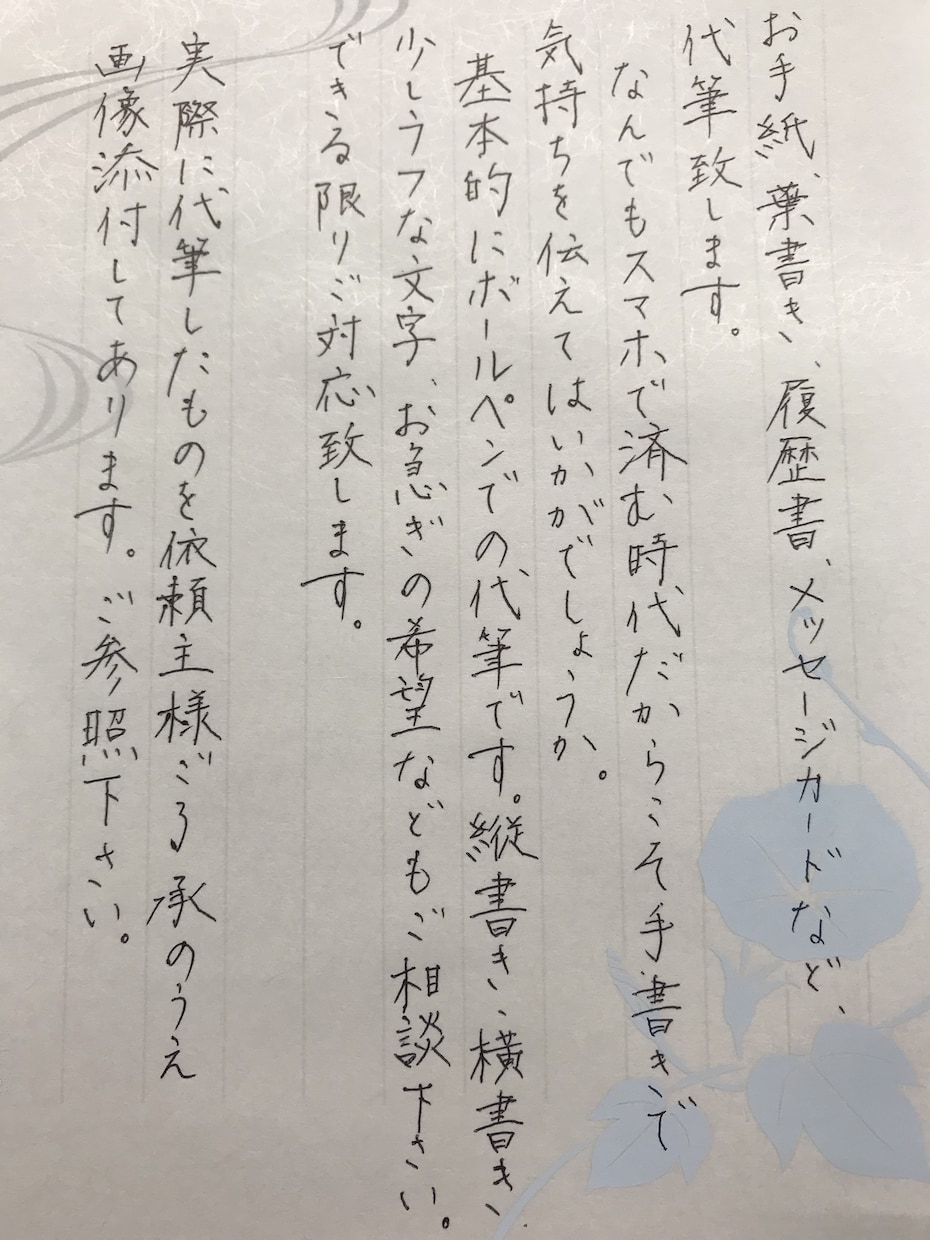 お手紙、葉書き、履歴書、メッセージカードなど、
代筆致します。
なんでもスマホで済む時代だからこそ手書きで
気持ちを伝えてはいかがでしょうか。
基本的にボールペンでの代筆です。縦書き、横書き、
少しラフな文字、お急ぎの希望などもご相談下さい。
できる限りご対応致します。
実際に代筆したものを依頼主様ご了承のうえ
画像添付してあります。ご参照下さい。